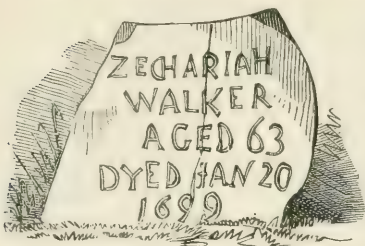 ZECHARIAH
WALKER
AGED 63
DYED JAN 20
1699